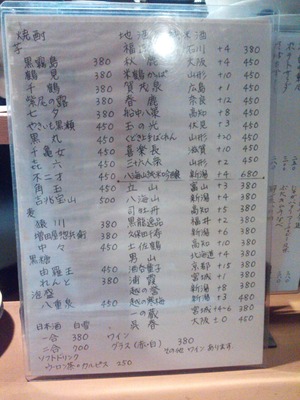 焼酎
芋
黒霧島 380
鶴見 380
千鶴 380
紫尾の露 380
七夕 380
やきいも黒瀬 450
黒丸 450
千亀女 450
喜六 450
不二才 450
角玉 450
吉兆宝山 500
麦
猿川 380
増田屋惣兵衛 380
中々 450
黒糖
由羅王 450
れんと 380
泡盛
八重泉 450
日本酒 白雪
一合 380
二合 700
ソフトドリンク
ウーロン茶・カルピス 250
地酒
石川 +4 380
秋鹿 大阪 +4 450
米鶴かっぱ 山形 +10 450
賀茂泉 広島 +1 450
春鹿 奈良 +12 450
船中八策 高知 +8 450
玉の光 伏見 +3 450
くどき上手ばくれん 山形 +20 450
喜楽長 滋賀 +10 450
三十六人衆 山形 +2 450
八海山純米吟醸 新潟 +4 680
立山 富山 +3 380
八海山 新潟 +4 380
司牡丹 高知 +5 380
黒龍逸品 福井 +2 380
久保田千寿 新潟 +6 380
土佐鶴 高知 +10 380
男山 北海道 +4 380
池田 京都 +15 380
浦霞 宮城 +1 380
越の誉 新潟 +8 380
越の寒梅 新潟 +3 480
一の蔵 宮城 +4~6 380
呉春 大阪 ±0 450
ワイン
グラス(赤・白) 380
その他ワインあります。